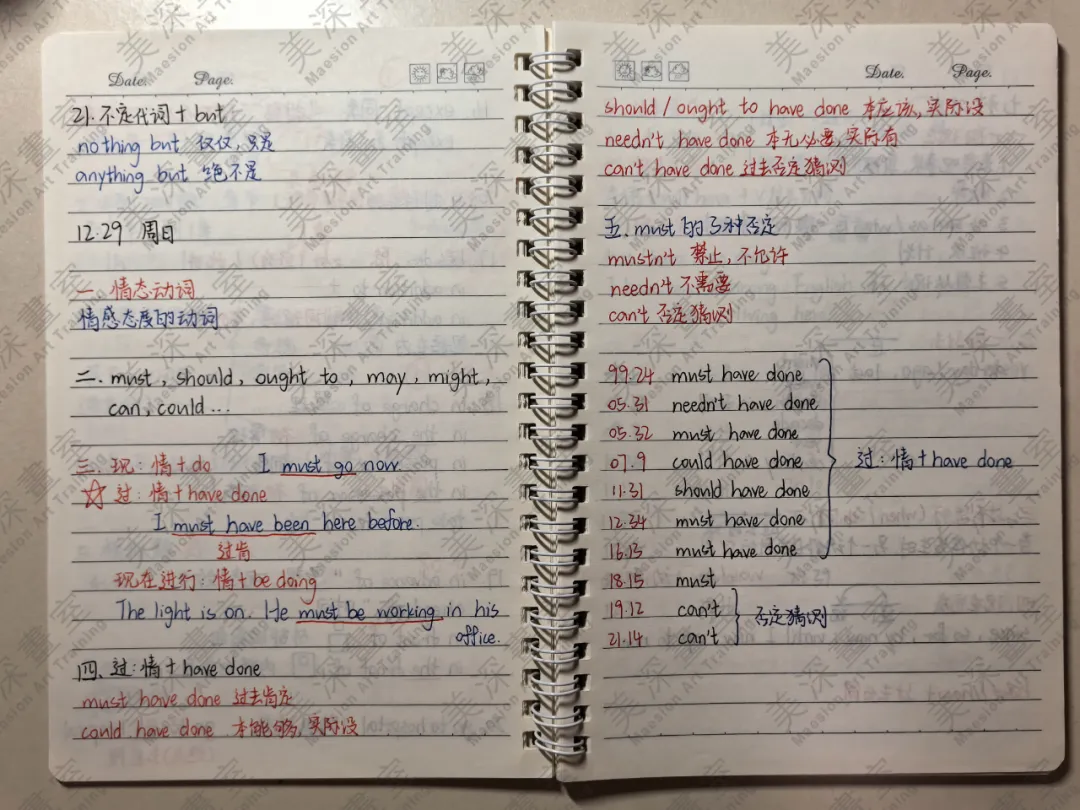 Date. Page.
21. 不定代词 + but
nothing but 仅仅,只是
anything but 绝不是
12.29 周日
一. 情态动词
情感态度的动词
二. must, should, ought to, may, might,
can, could...
三. 现: 情+do I must go now.
☆ 过: 情+have done
I must have been here before.
过肯
现在进行: 情+be doing
The light is on. He must be working in his
office.
四. 过: 情+have done
must have done 过去肯定
could have done 本能够,实际没
Date. Page.
should / ought to have done 本应该,实际没
needn't have done 本无必要,实际有
can't have done 过去否定猜测
五. must的3种否定
mustn't 禁止,不允许
needn't 不需要
can't 否定猜测
99.24 must have done
05.31 needn't have done
05.32 must have done
07.9 could have done 过: 情+have done
11.31 should have done
12.34 must have done
16.13 must have done
18.15 must
19.12 can't 否定猜测
21.14 can't
深美畫室
Maesion Art Training